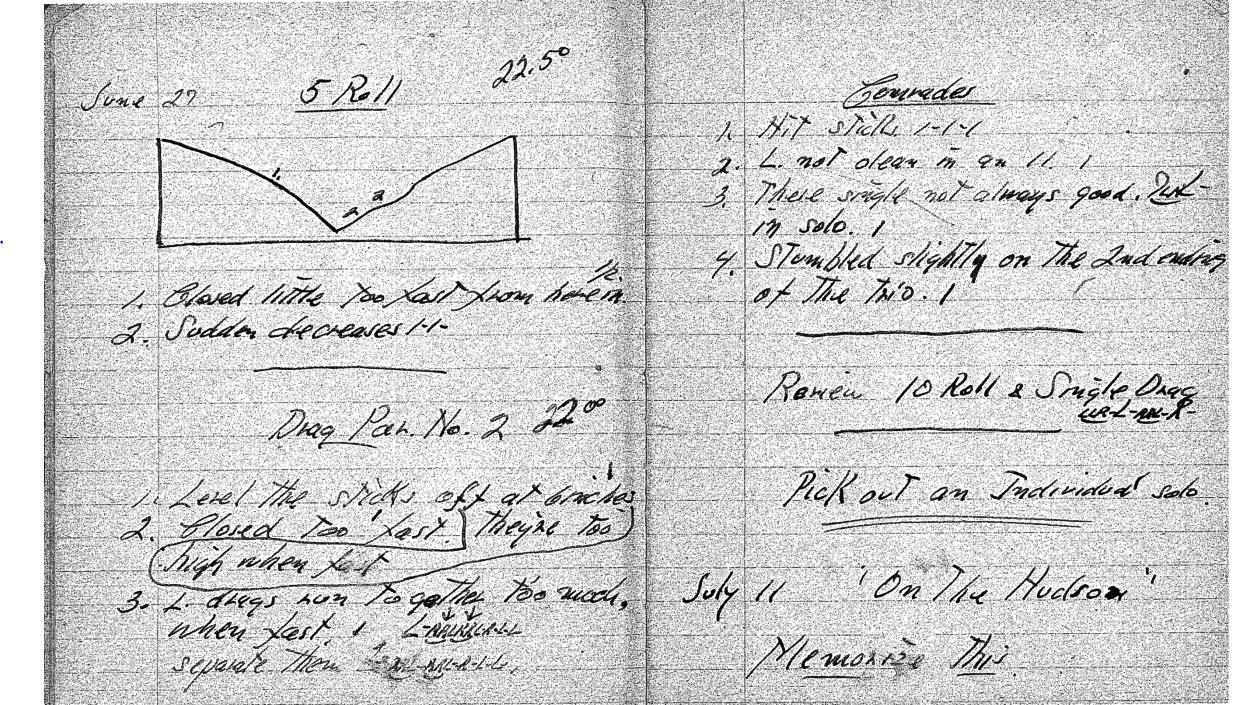 June 27 5 Roll 22.5°
1.
2 2
1/2.
1. Closed little too fast from here in
2. Sudden decreases 1-1-
Drag Par. No. 2 22°°
1. Level the sticks off at 6 inches
2. Closed too fast. They're too
high when fast
3. L. drags run together too much,
when fast. 1
separate them
Comrades
1. Hit sticks 1-1-1
2. L. not clean in an 11. 1
3. These single not always good.
in solo. 1
4. Stumbled slightly on the 2nd ending
of the trio. 1
Review 10 Roll & Single Drag
Pick out an Individual solo.
July 11 'On The Hudson'
Memorize This